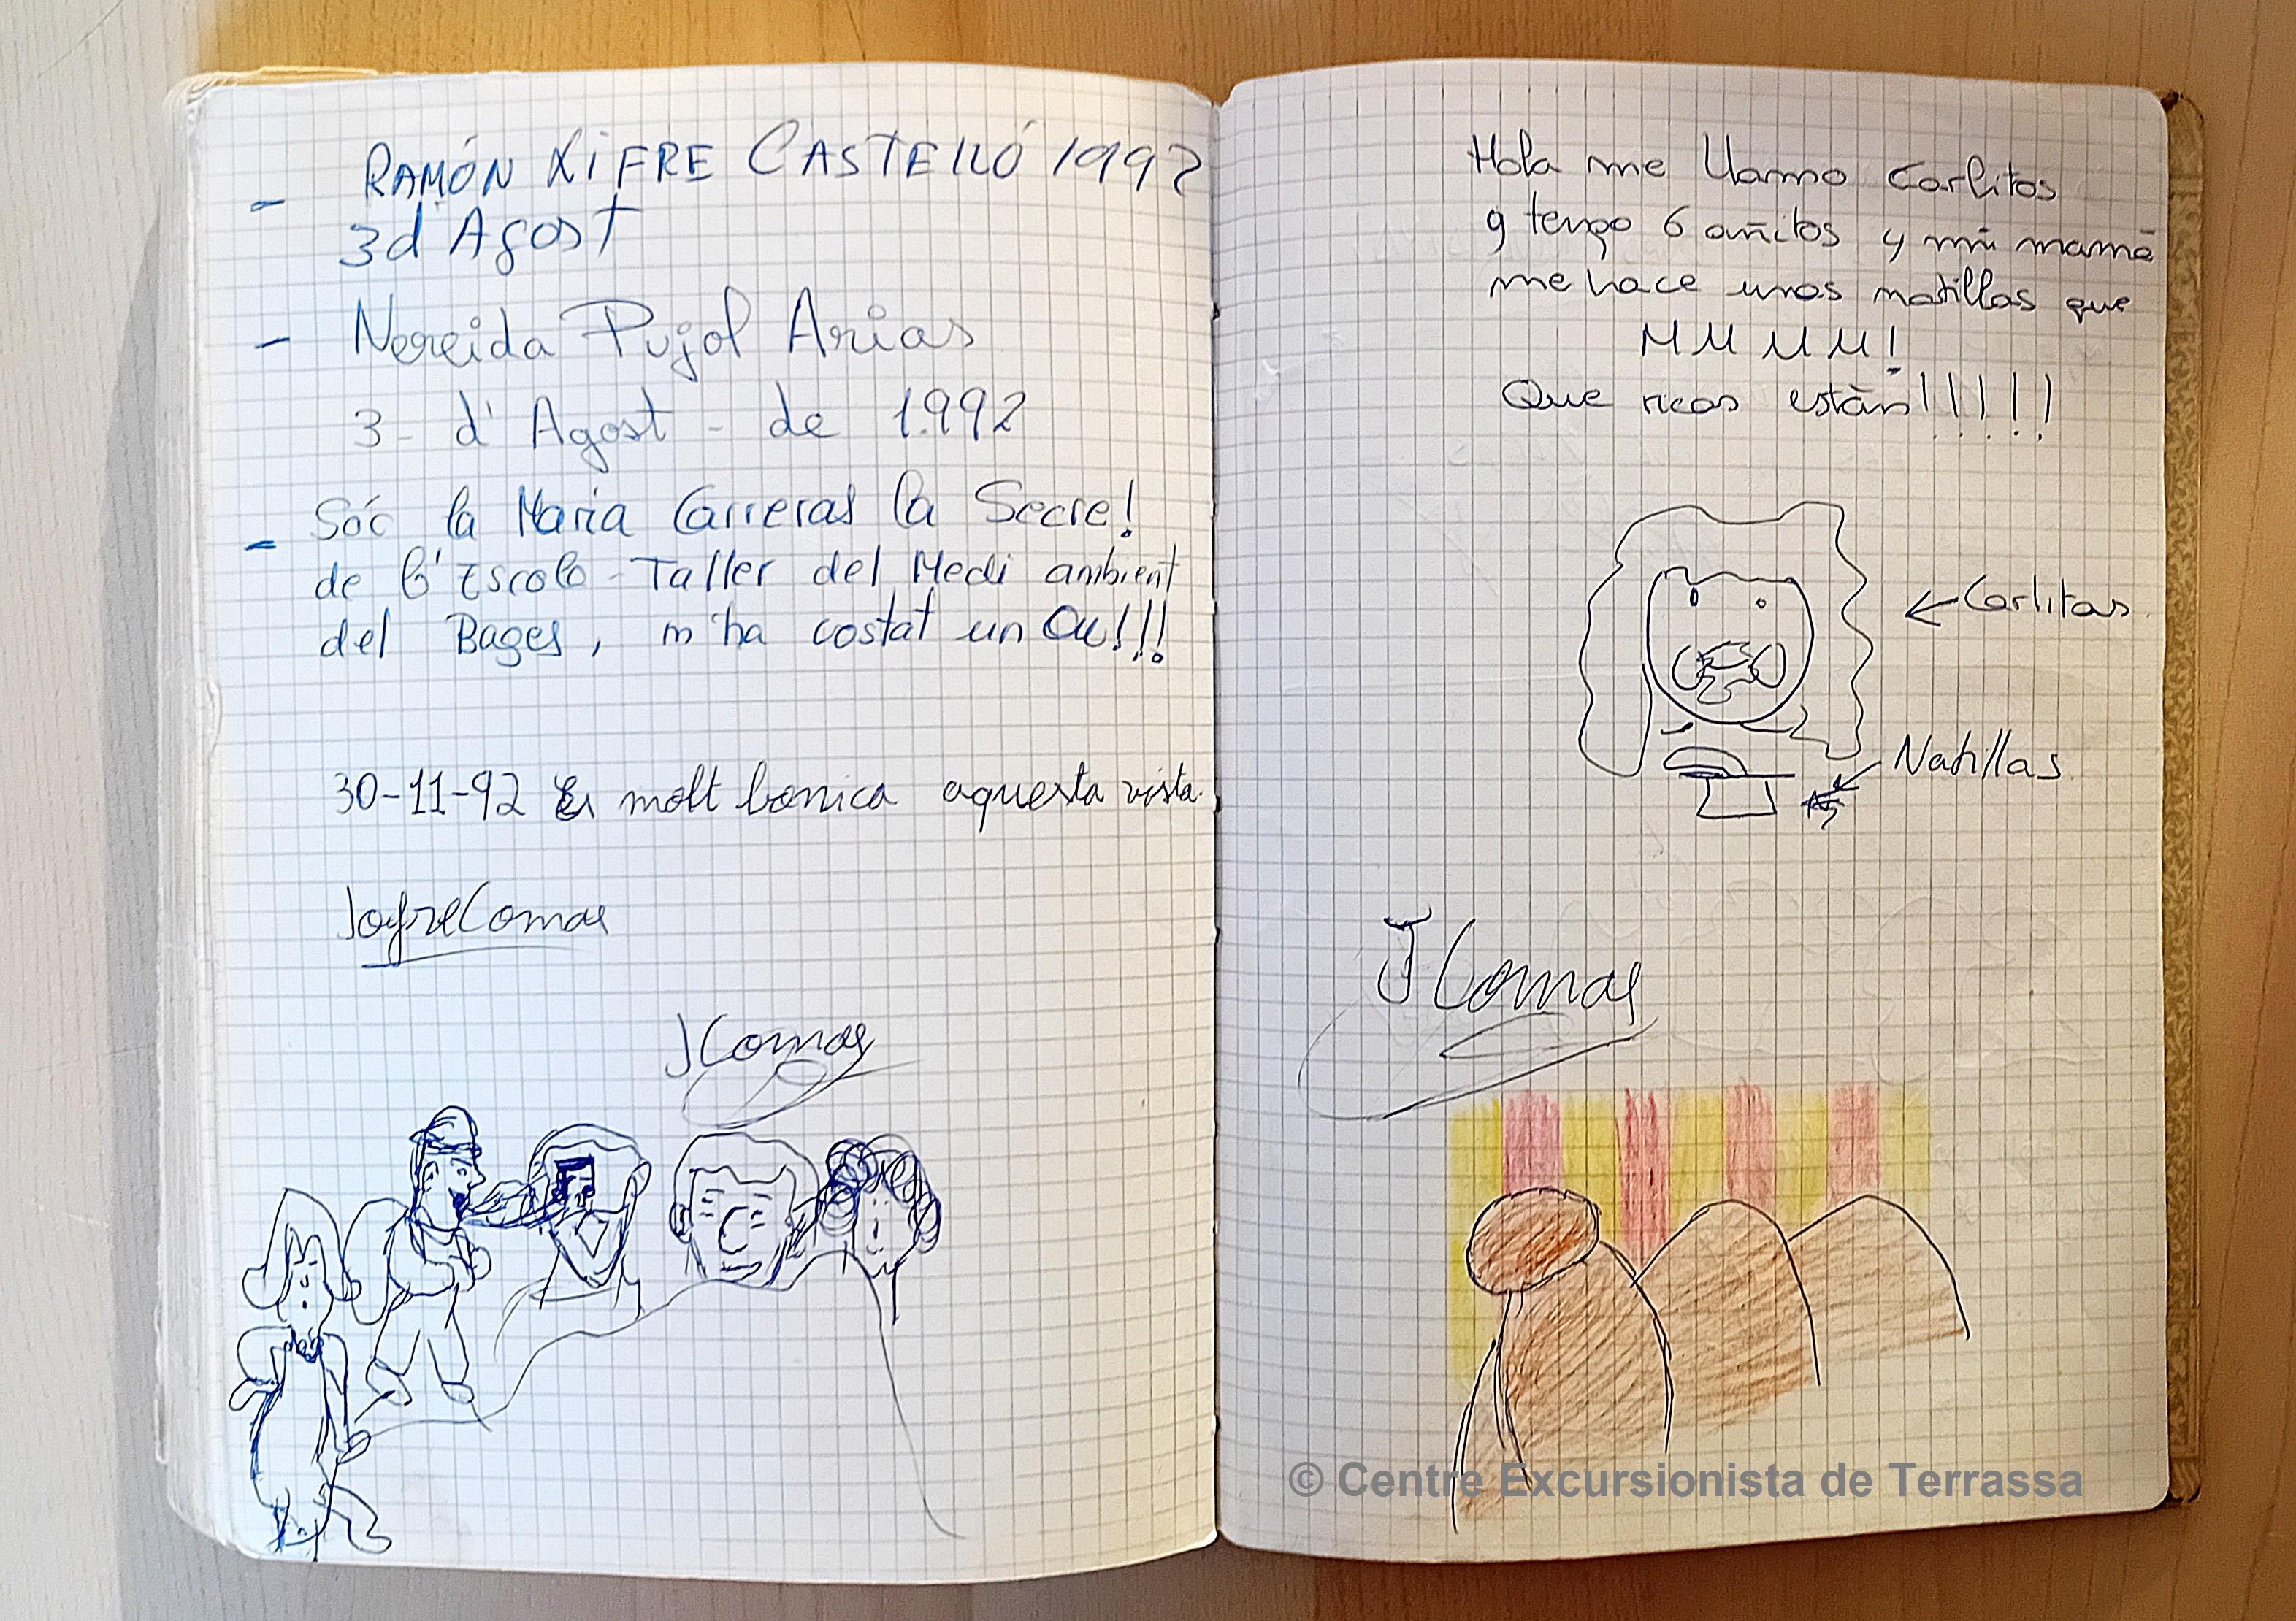 - RAMÓN XIFRE CASTELLÓ 1992
3 d'Agost
- Nereida Pujol Arias
3 - d'Agost - de 1.992
- Sóc la Maria Carreras la Secre!
de l'Escola-Taller del Medi ambient
del Bages, m'ha costat un Ou!!!
30-11-92 Es molt bonica aquesta vista.
Jofre Comas
J Comas
Hola me llamo Carlitos
y tengo 6 añitos y mi mamá
me hace unas natillas que
MMMM!
Que ricas están!!!!!!
← Carlitos.
Natillas
J Comas
© Centre Excursionista de Terrassa